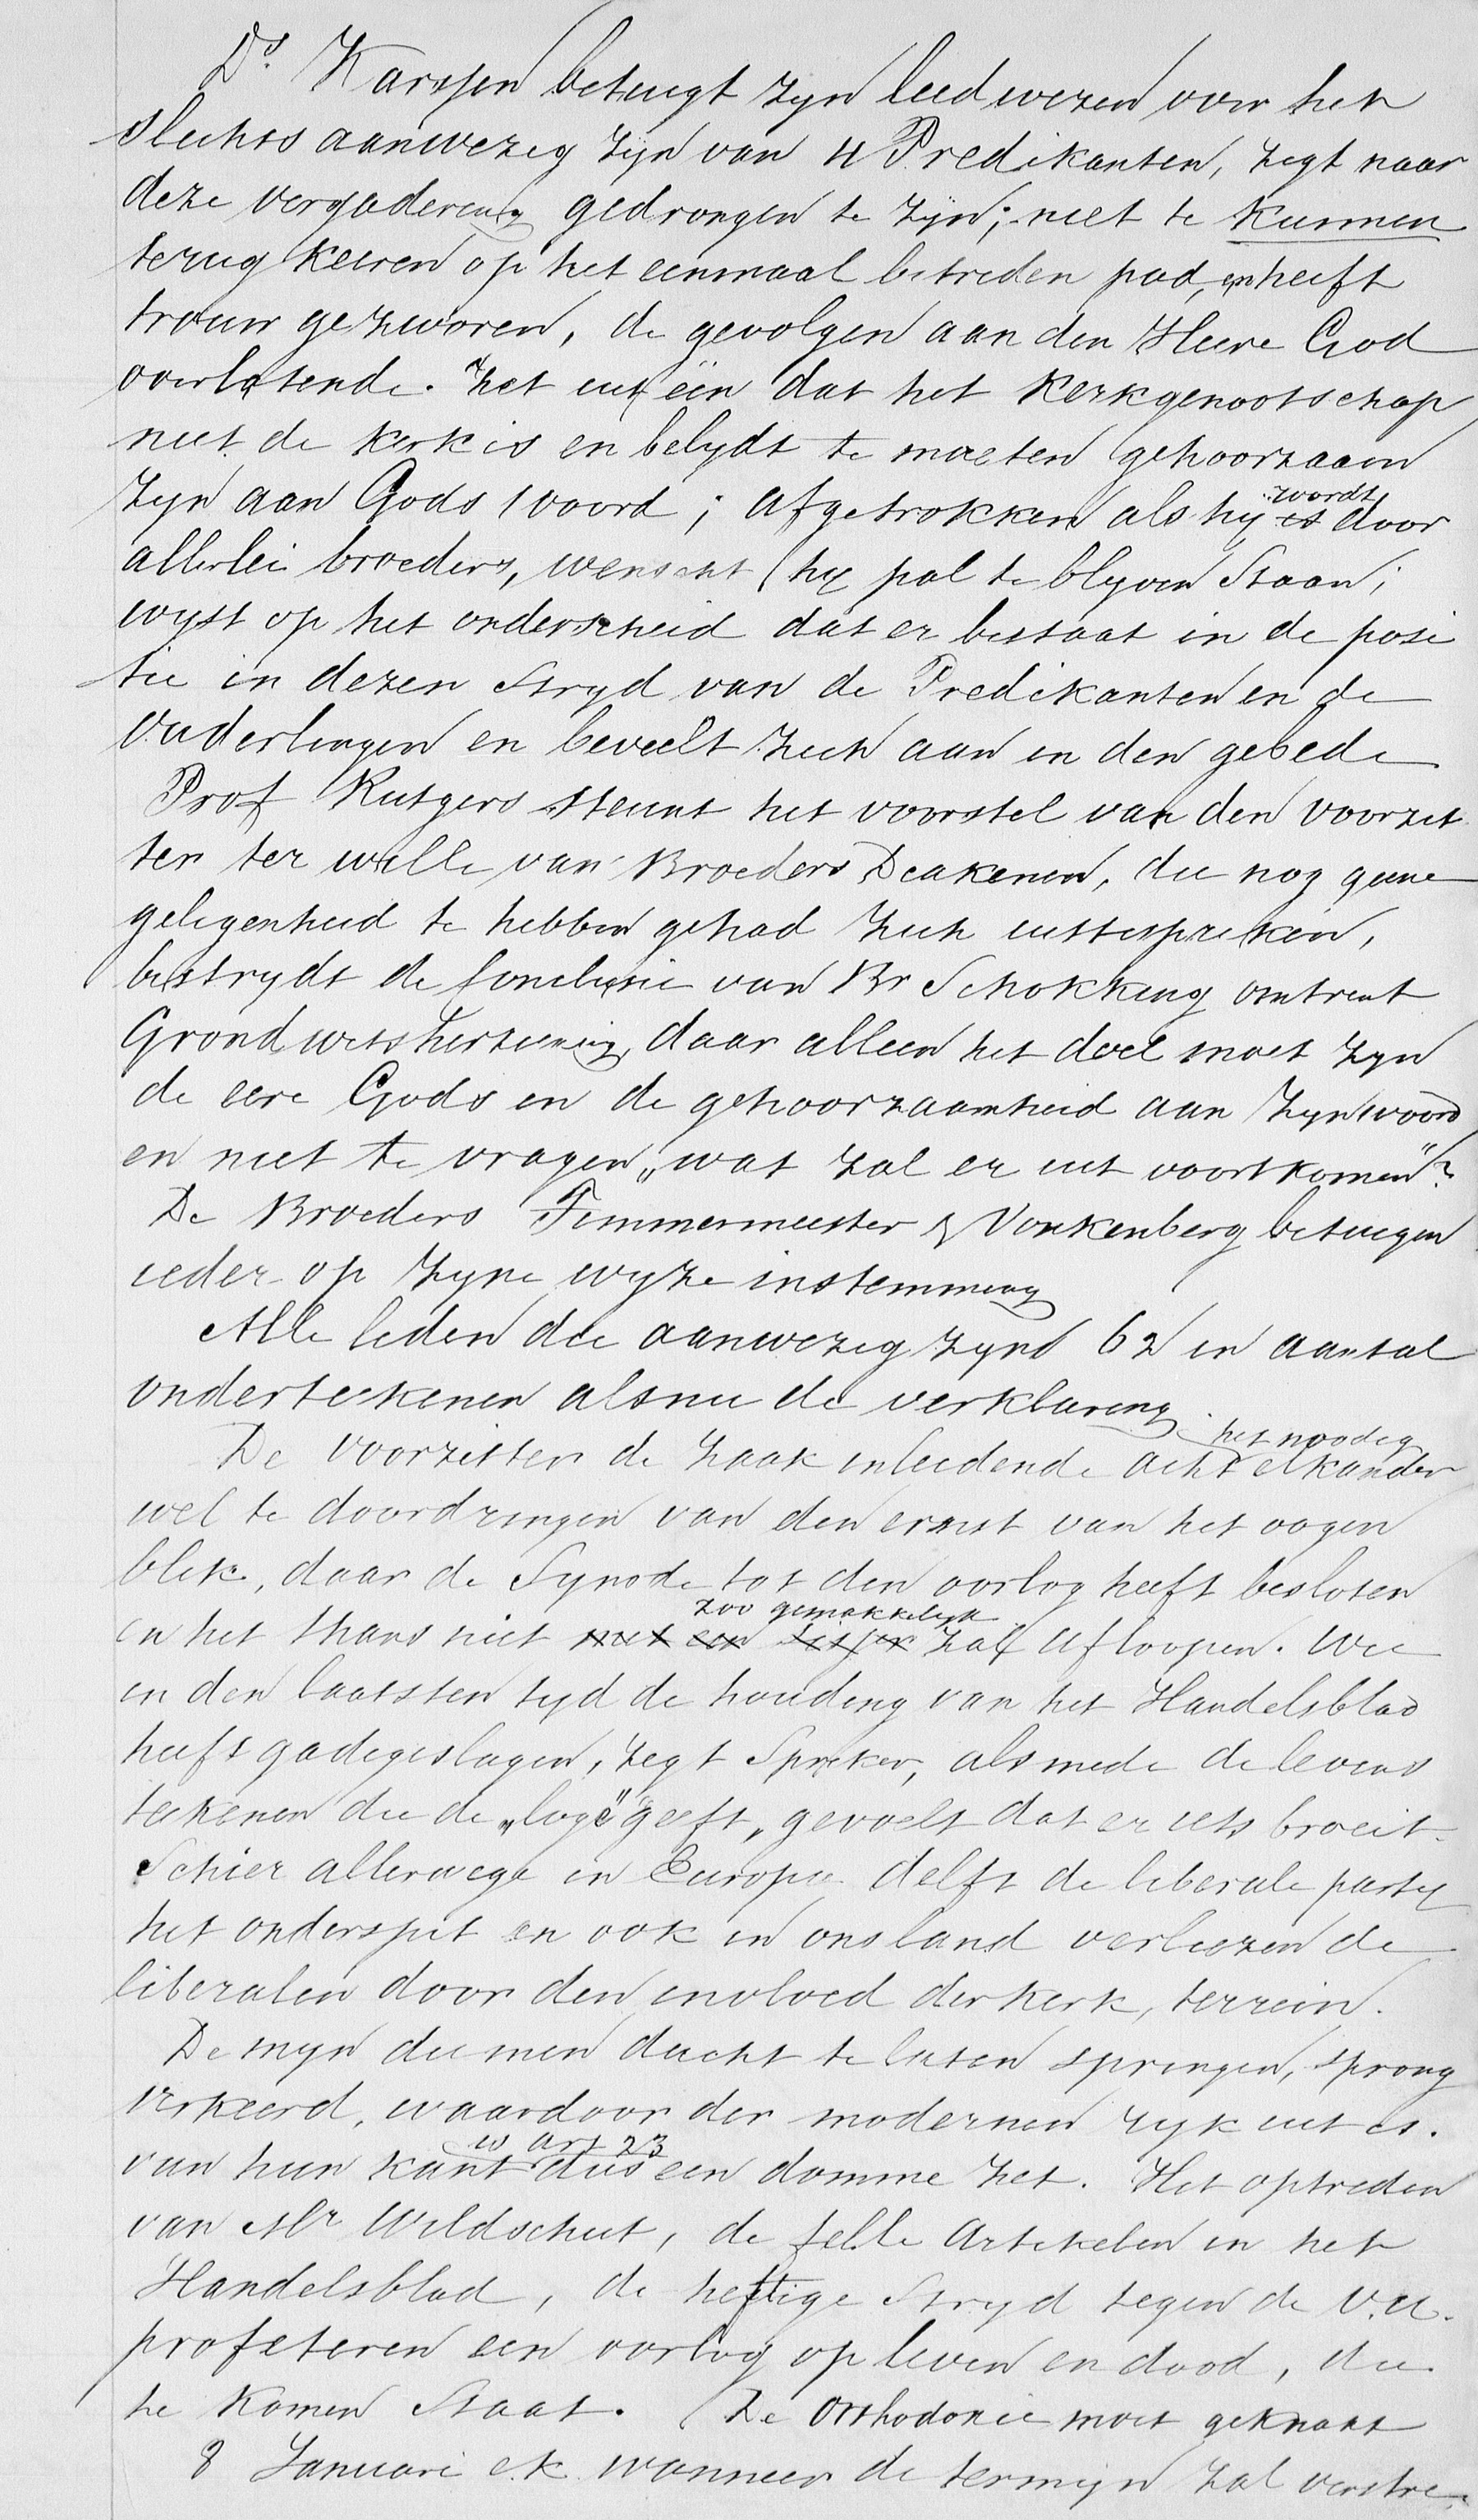 Ds Karssen betuigt zyn leedwezen over het
slechts aanwezig zyn van 4 Predikanten, zegt naar
deze vergadering gedrongen te zyn; niet te kunnen
terug keeren op het eenmaal betreden pad, en heeft
trouw gezworen, de gevolgen aan den Heere God
overlatende. Zet uit één dat het Kerkgenootschap
niet de kerk is en belydt te moeten gehoorzaam
zyn aan Gods woord; afgetrokken als hy wordt door
allerlei broeders, wenscht hy pal te blyven staan;
wyst op het onderscheid dat er bestaat in de posi
tie in dezen stryd van de Predikanten en de
ouderlingen en beveelt zich aan in den gebede
Prof Rutgers steunt het voorstel van den voorzit
ter ter wille van Broeders Diakenen, die nog geene
gelegenheid te hebben gehad zich uittespreken,
bestrydt de conclusie van Br Schokking omtrent
Grondwetsherziening, daar alleen het doel moet zyn
de eere Gods en de gehoorzaamheid aan Zyn woord
en niet te vragen „wat zal er uit voortkomen"?
De Broeders Timmermeester & Vonkenberg betuigen
ieder op zyne wyze instemming
Alle leden die aanwezig zynd 62 in aantal
onderteekenen alsnu de verklaring.
De voorzitter de zaak inleidende acht het noodig elkander
wel te doordringen van den ernst van het oogen
blik, daar de Synode tot den oorlog heeft besloten
en het thans niet met een zoo gemakkelyk zal afloopen. Wie
in den laatsten tyd de houding van het Handelsblad
heeft gadegeslagen, zegt Spreker, alsmede de levens
teekenen die de „loge" geeft, gevoelt dat er iets broeit.
Schier allerwege in Europa delft de liberale party
het onderspit en ook in ons land verliezen de
liberalen door den invloed der kerk, terrein.
De myn die men dacht te laten springen, sprong
verkeerd, waardoor der modernen ryk uit is.
van hun kant is Art 23 dus een domme zet. Het optreden
van Mr Wildschut, de felle Artikelen in het
Handelsblad, de heftige Stryd tegen de V.U.
profeteren een oorlog op leven en dood, die
te komen staat. De Orthodoxie moet geknakt
8 Januari e.k. wanneer de termyn zal verstre